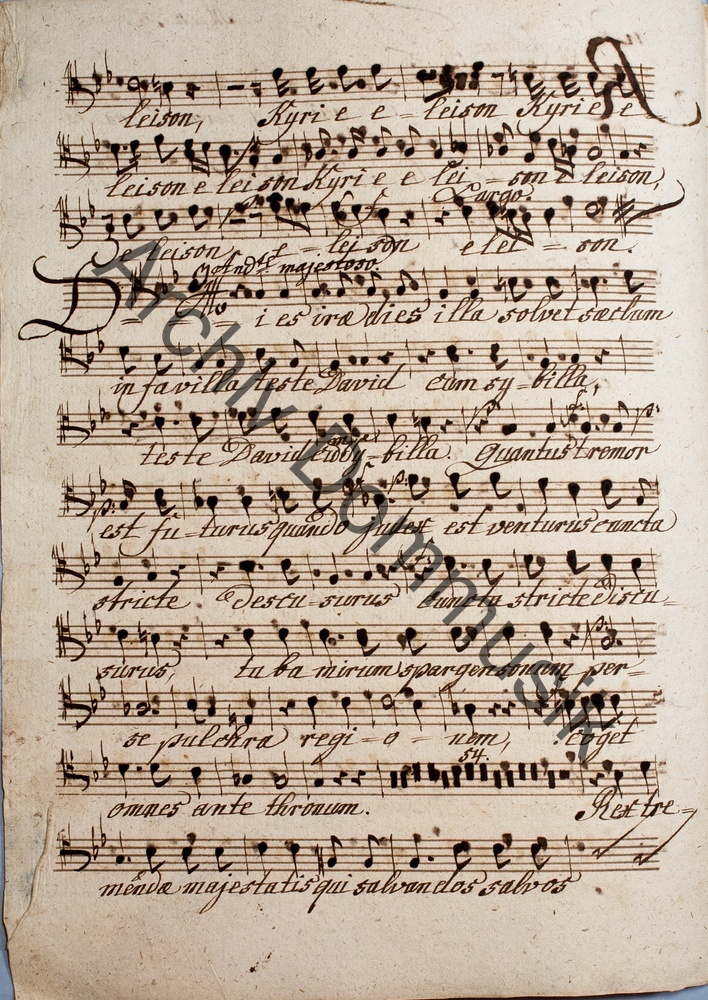 leison, Kyri e e = leison Kyrie e
leison e leison Kyri e e lei = son e leison,
Largo.
e leison e = leison e lei = son.
And:te majestoso.
D = = i es iræ dies illa solvet sæclum
in favilla teste David cum sy = billa,
teste David cum sy = billa. Quantus tremor
est fu = turus quando judex est venturus cuncta
stricte discu = surus cuncta stricte discu =
surus, tuba mirum spargens onum per =
se pulchra regi = o = nem, coget
54.
omnes ante thronum. Rex tre =
mendæ majestatis qui salvandos salvos
Archiv Dommusik